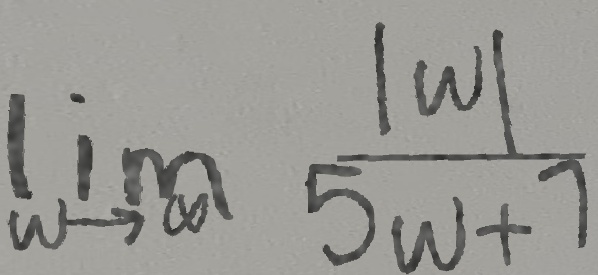 lim_{w→∞} \frac{|w|}{5w+7}